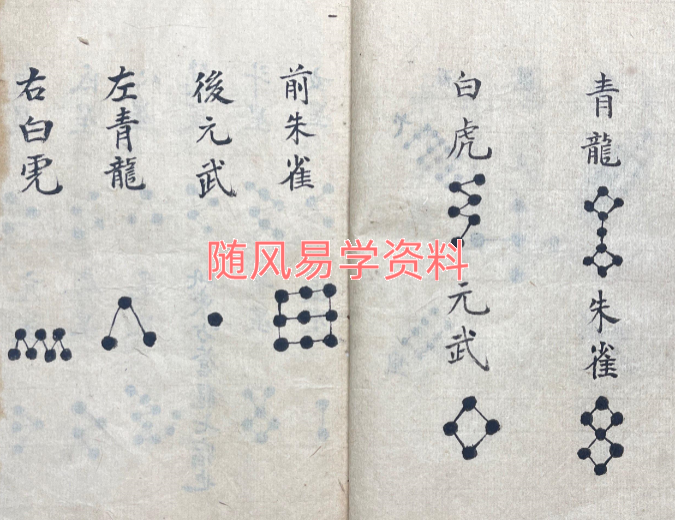 青龍
朱雀
白虎
元武
前朱雀
後元武
左青龍
右白虎
随风易学资料